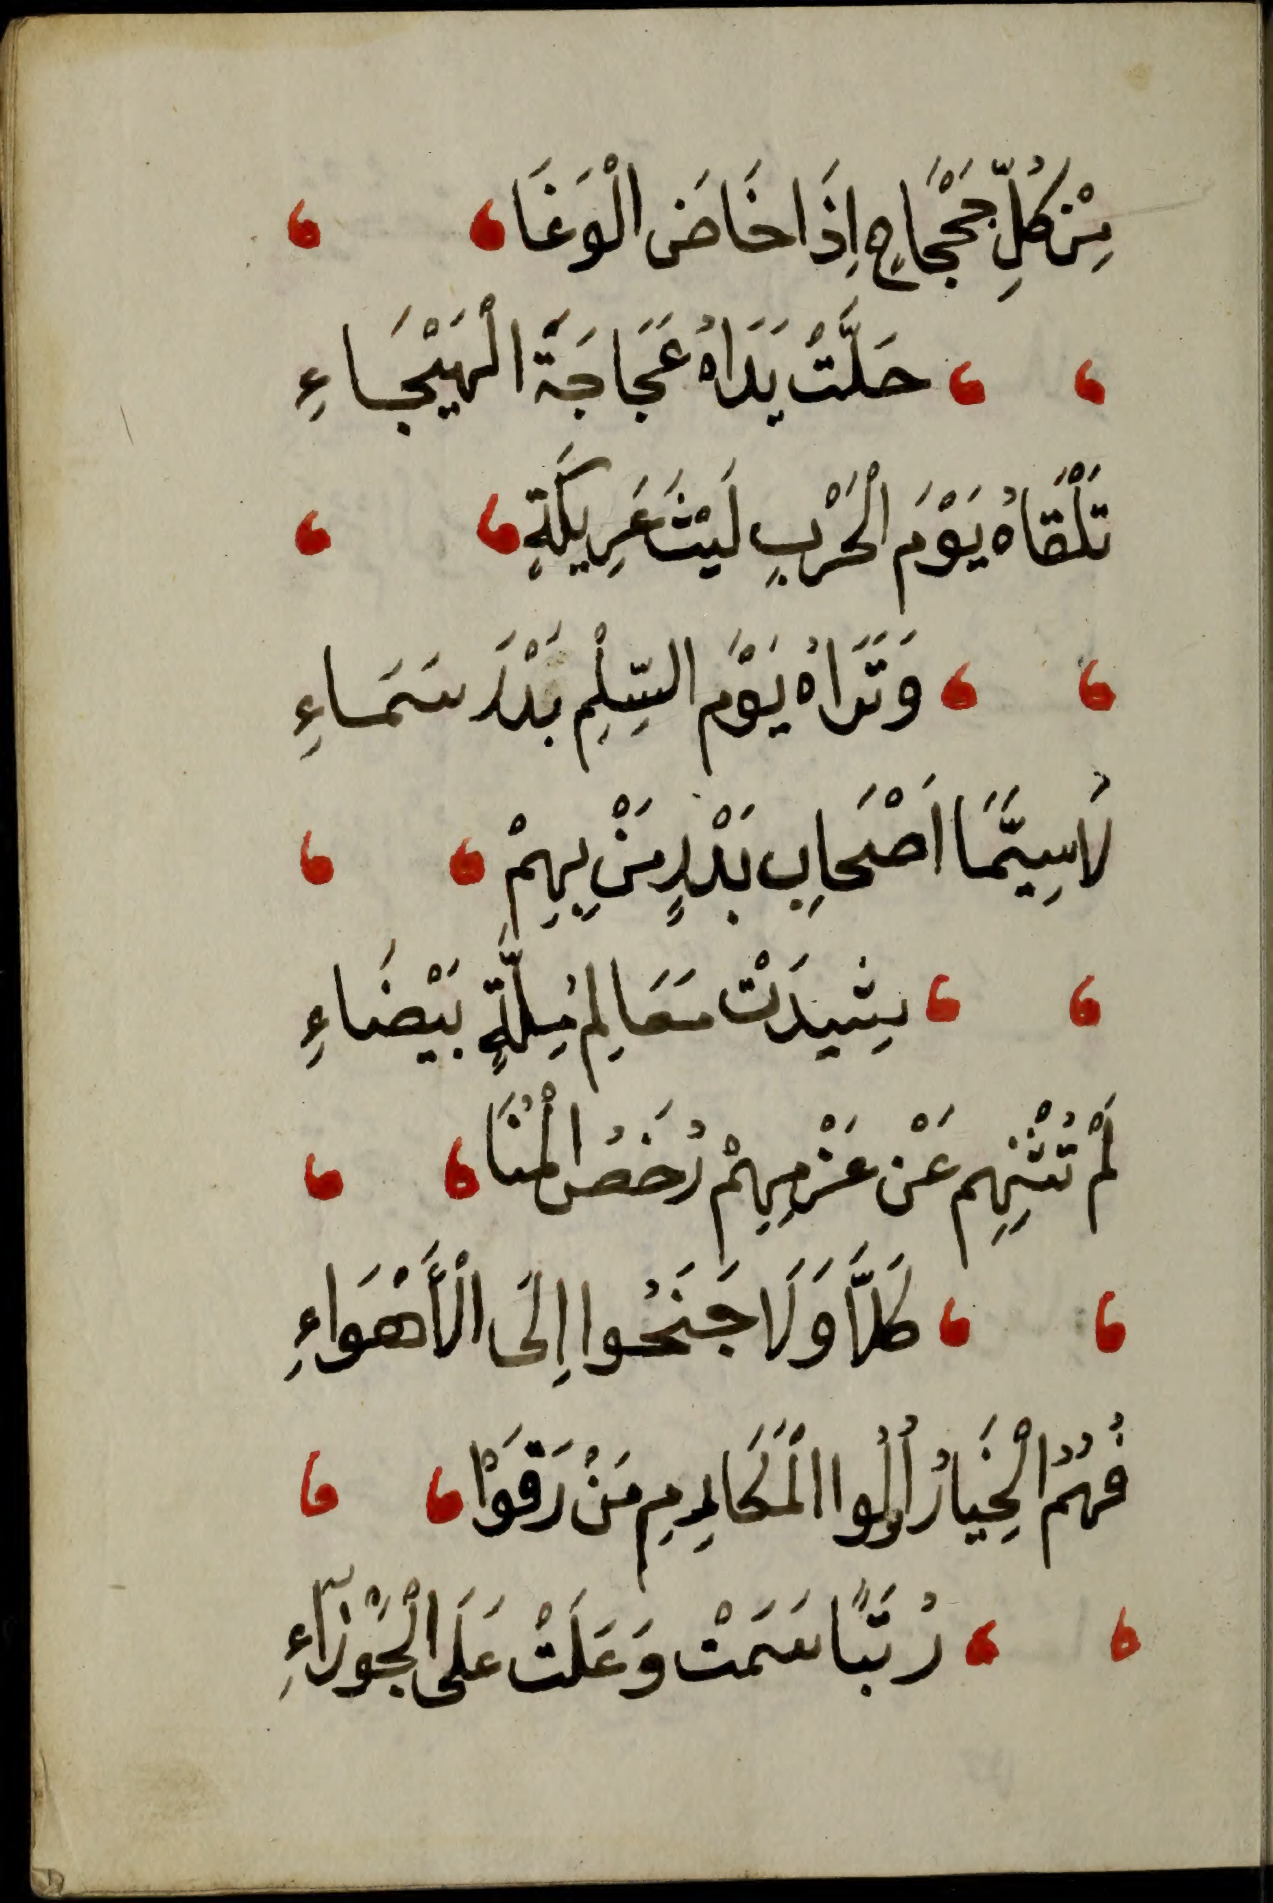 مِنْ كُلِّ جَحْجَاحٍ اِذَا خَاضَ الْوَغَا
حَلَّتْ يَدَاهُ عَجَاجَةَ الْهَيْجَاءِ
تَلْقَاهُ يَوْمَ الْحَرْبِ لَيْثَ عَرِيكَةٍ
وَتَرَاهُ يَوْمَ السِّلْمِ بَدْرَ سَمَاءِ
لَاسِيَّمَا اَصْحَابِ بَدْرٍ مَنْ بِهِمْ
شِيدَتْ مَعَالِم مِلَّةٍ بَيْضَاءِ
لَمْ تُثْنِهِم عَنْ عَزْمِهِمْ رُخَصُ الْمُنَا
كَلَّا وَلَا جَنَحُوا اِلَى الْأَهْوَاءِ
فَهُمُ الْخِيَارُ أُولُوا الْمَكَارِمِ مَنْ رَقَوْا
رُتَبًا سَمَتْ وَعَلَتْ عَلَى الْجَوْزَآءِ